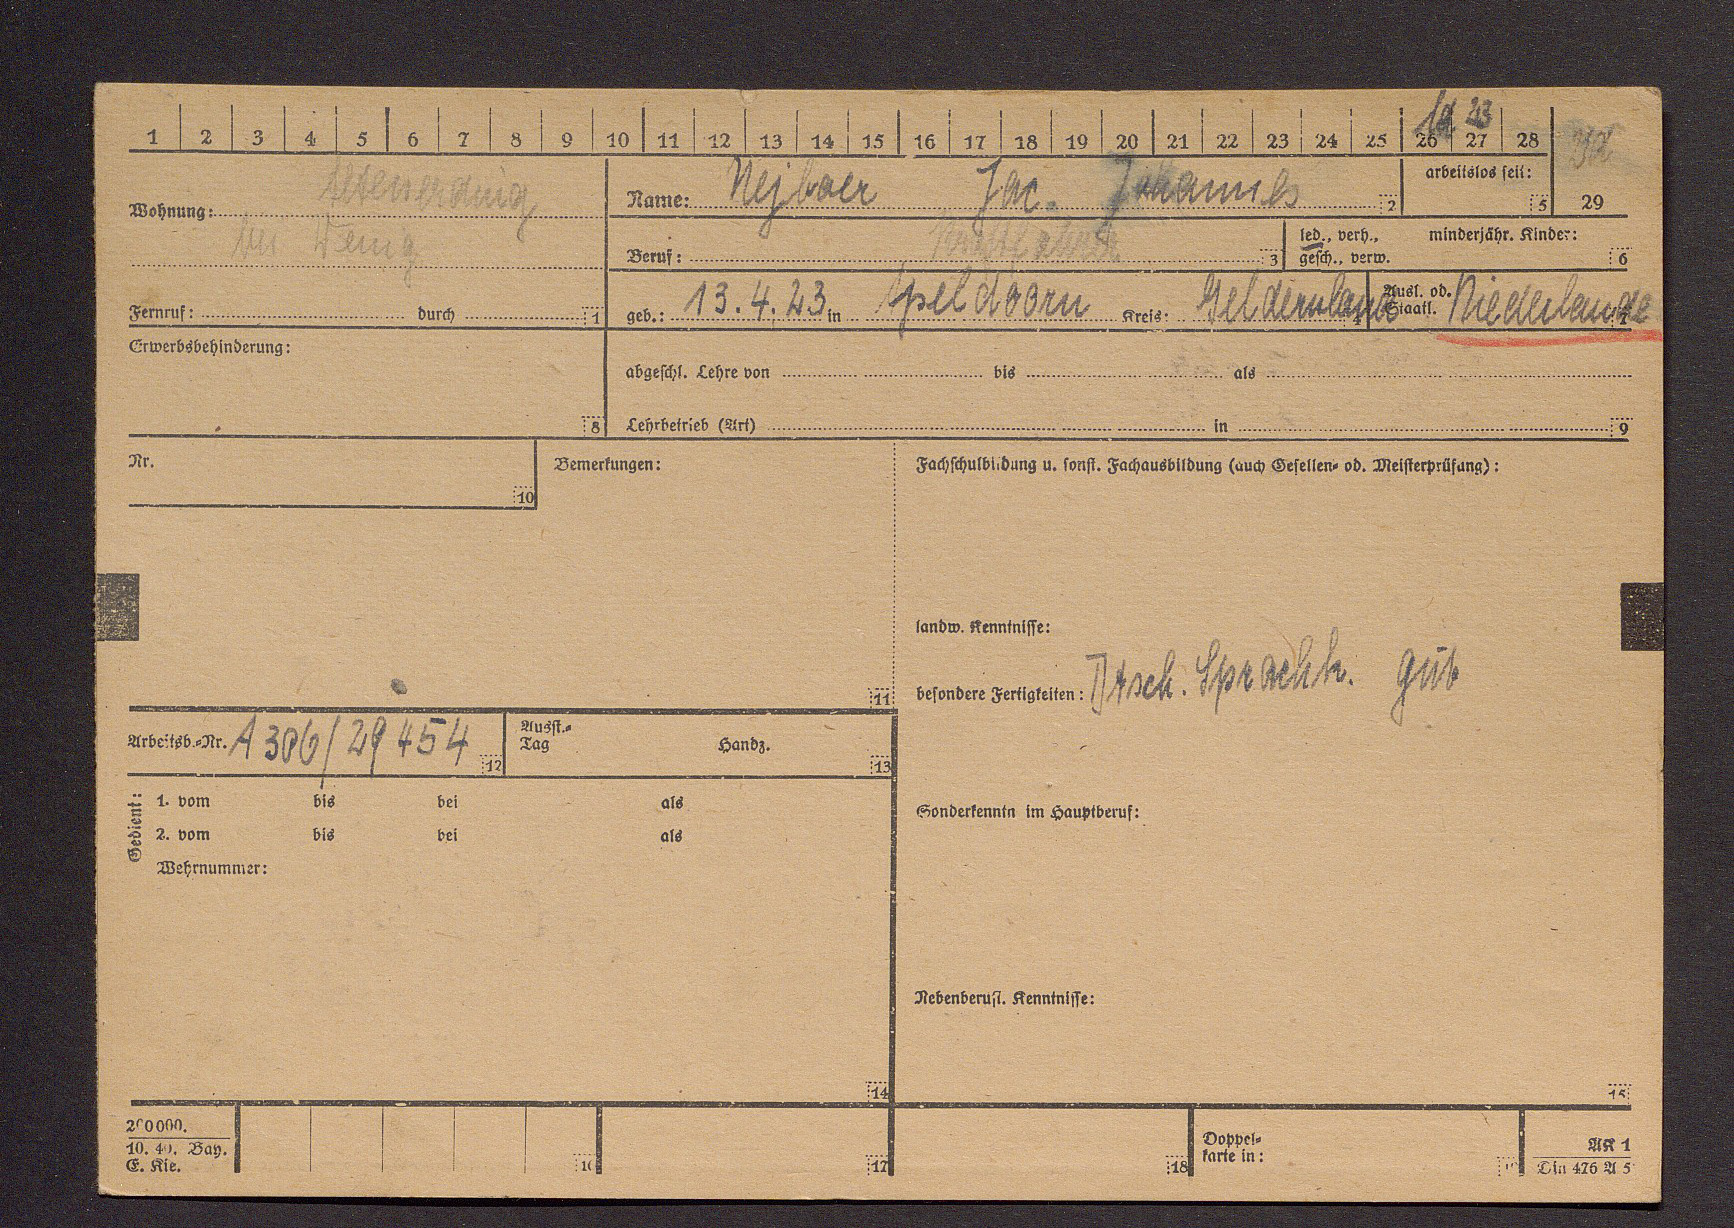 1 2 3 4 5 6 7 8 9 10 11 12 13 14 15 16 17 18 19 20 21 22 23 24 25 26 27 28
1d 23
29
Wohnung: Altenerding
bei Wenig
Fernruf: durch 1
Name: Nejboer Jac. Johannes 2
arbeitslos seit: 5
Beruf: 3
led., verh., gesch., verw.
minderjähr. Kinder: 6
geb.: 13.4.23 in Apeldoorn Kreis: Geldernland 4
Ausl. od. Staatl. Niederlande 7
Erwerbsbehinderung: 8
abgeschl. Lehre von bis als
Lehrbetrieb (Art) in 9
Nr. 10
Bemerkungen: 11
Fachschulbildung u. sonst. Fachausbildung (auch Gesellen- od. Meisterprüfung):
landw. Kenntnisse:
besondere Fertigkeiten: Dtsch. Sprachk. gut
Arbeitsb.-Nr. A 386/29454 12
Ausst.-Tag Handz. 13
Gedient:
1. vom bis bei als
2. vom bis bei als
Wehrnummer: 14
Sonderkenntn im Hauptberuf:
Nebenberufl. Kenntnisse: 15
200000.
10. 40. Bay.
E. Kie.
16 17 18
Doppel-
karte in: 19
AK 1
Din 476 A 5